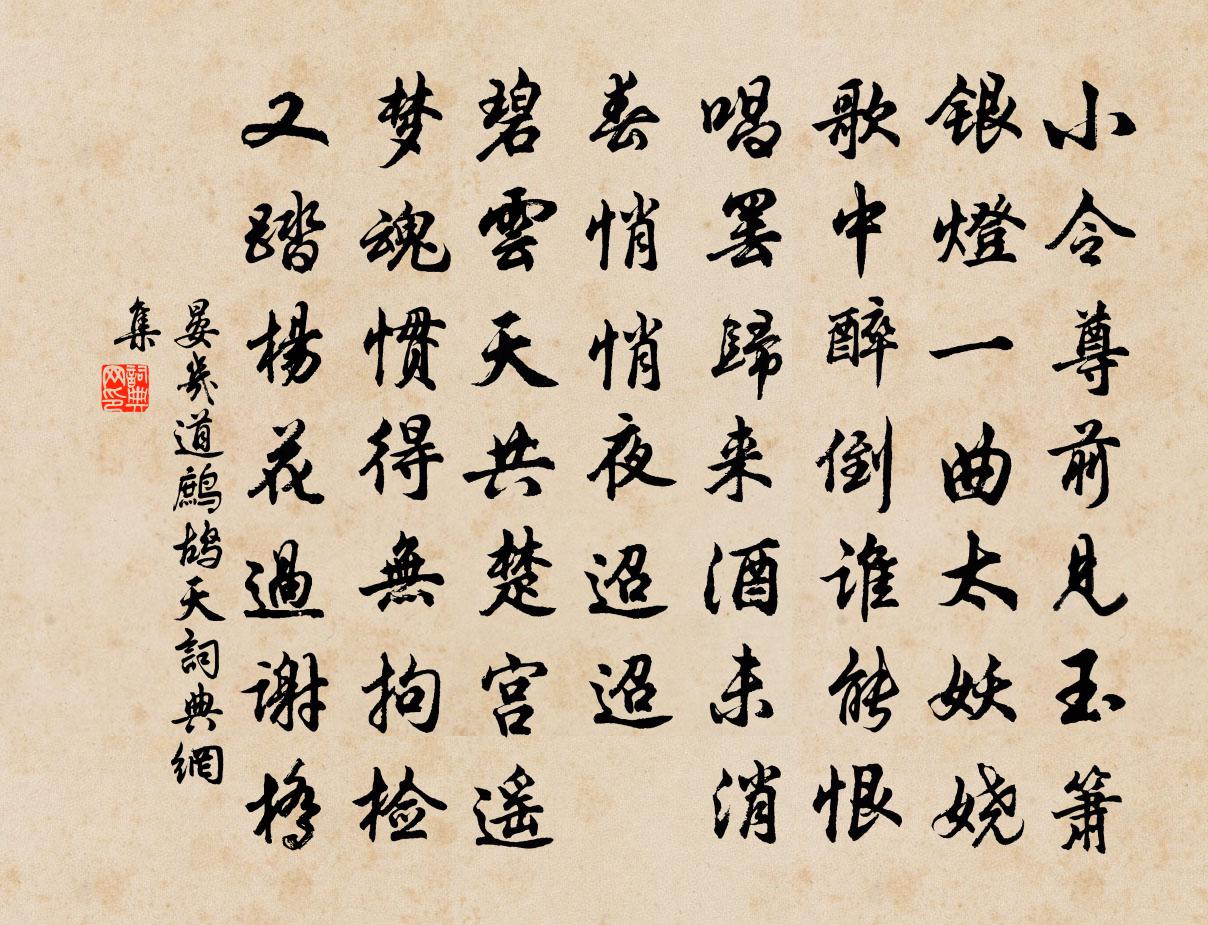 小令尊前見玉簫
銀燈一曲太妖嬈
歌中醉倒誰能恨
唱罷歸来酒未消
春悄悄夜迢迢
碧雲天共楚宮遥
梦魂慣得無拘检
又踏楊花過謝橋
晏幾道鷓鴣天詞典網
集
詞典
网印